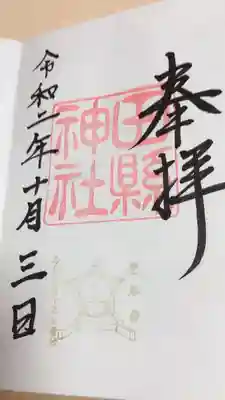 奉拝
田縣
神社
令和二年十月三日